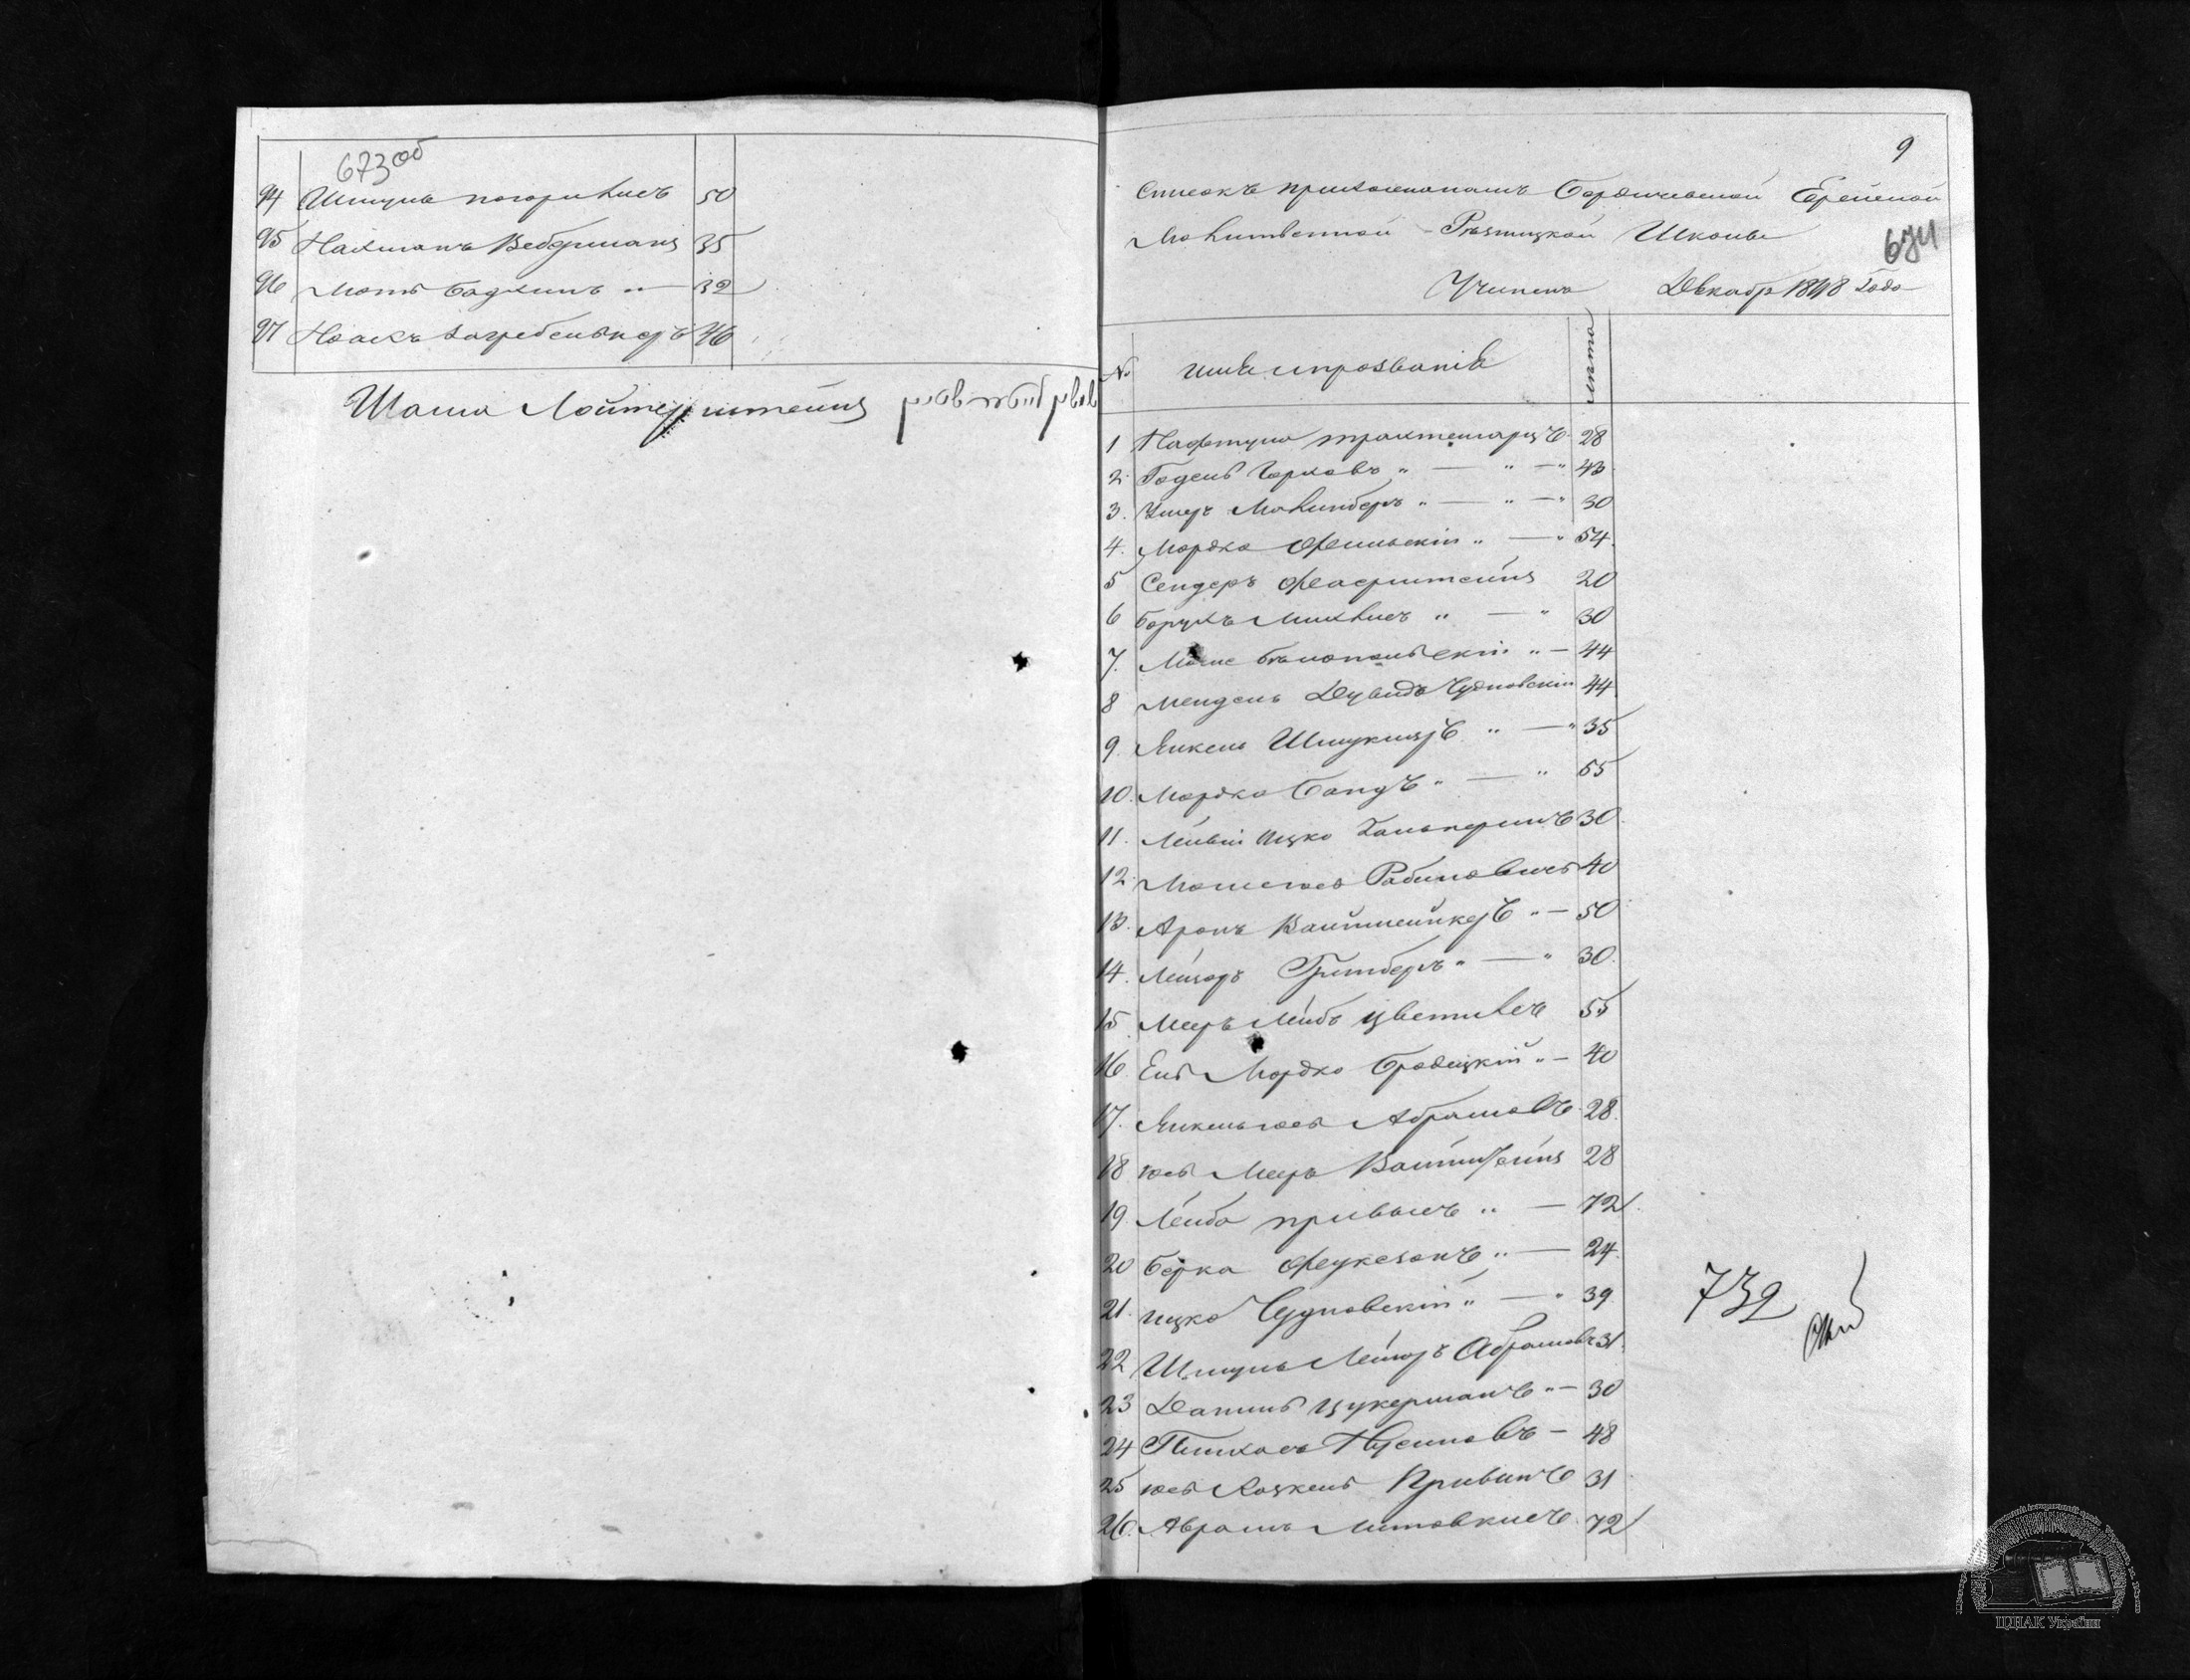 673об
94 Шмуль погориллсъ 50
95 Нахманъ Вебдрманъ 35
96 Моть Бадхинъ " — 32
97 Исаакъ Загребельнеръ 46
Шама Лойтерштейнъ
9
Списокъ прихожанамъ Бердичевской Еврейской
Молитвенной Резницкой Школы
674
Учиненъ Декабр 1848 Года
№ имя и прозваніе лѣта
1 Нафтула трахтенгарцъ 28
2. Годель Горховъ " — " — " 43
3. Ушеръ Малинберъ " — " — " 30
4. Мордко Фельскій " — " 54
5 Сендеръ Феаерштейнъ 20
6 Борухъ Михлисъ " — " 30
7. Моше Бѣлопольскій " — 44
8 Мендель Дувидъ Чудновскій 44
9. Янкель Шмуклеръ " — " 35
10. Мордко Бандъ " — " 55
11. Лейви Ицко Гальперинъ 30
12. Мошеюсъ Рабиновичъ 40
13. Аронъ Вайншенкеръ " — 50
14. Лейзоръ Гринберъ " — " 30
15. Мееръ Лейбъ Цветилсъ 55
16. Ель Мордко Бродецкій " — 40
17. Янкель юсь Абрамовъ 28
18 юсь Мееръ Вайнштейнъ 28
19. Лейба привисъ " — 72
20 Берка Фукезонъ " — 24
21. ицко Чудновскій " — " 39
22 Шмуль Лейзоръ Абрамовъ 31
23 Даниль Цукерманъ " — 30
24 Пинхасъ Нусиновъ — 48
25 юсь Хаскель Привинъ 31
26. Аврамъ Литовкисъ 72
732
ЦДІАК України